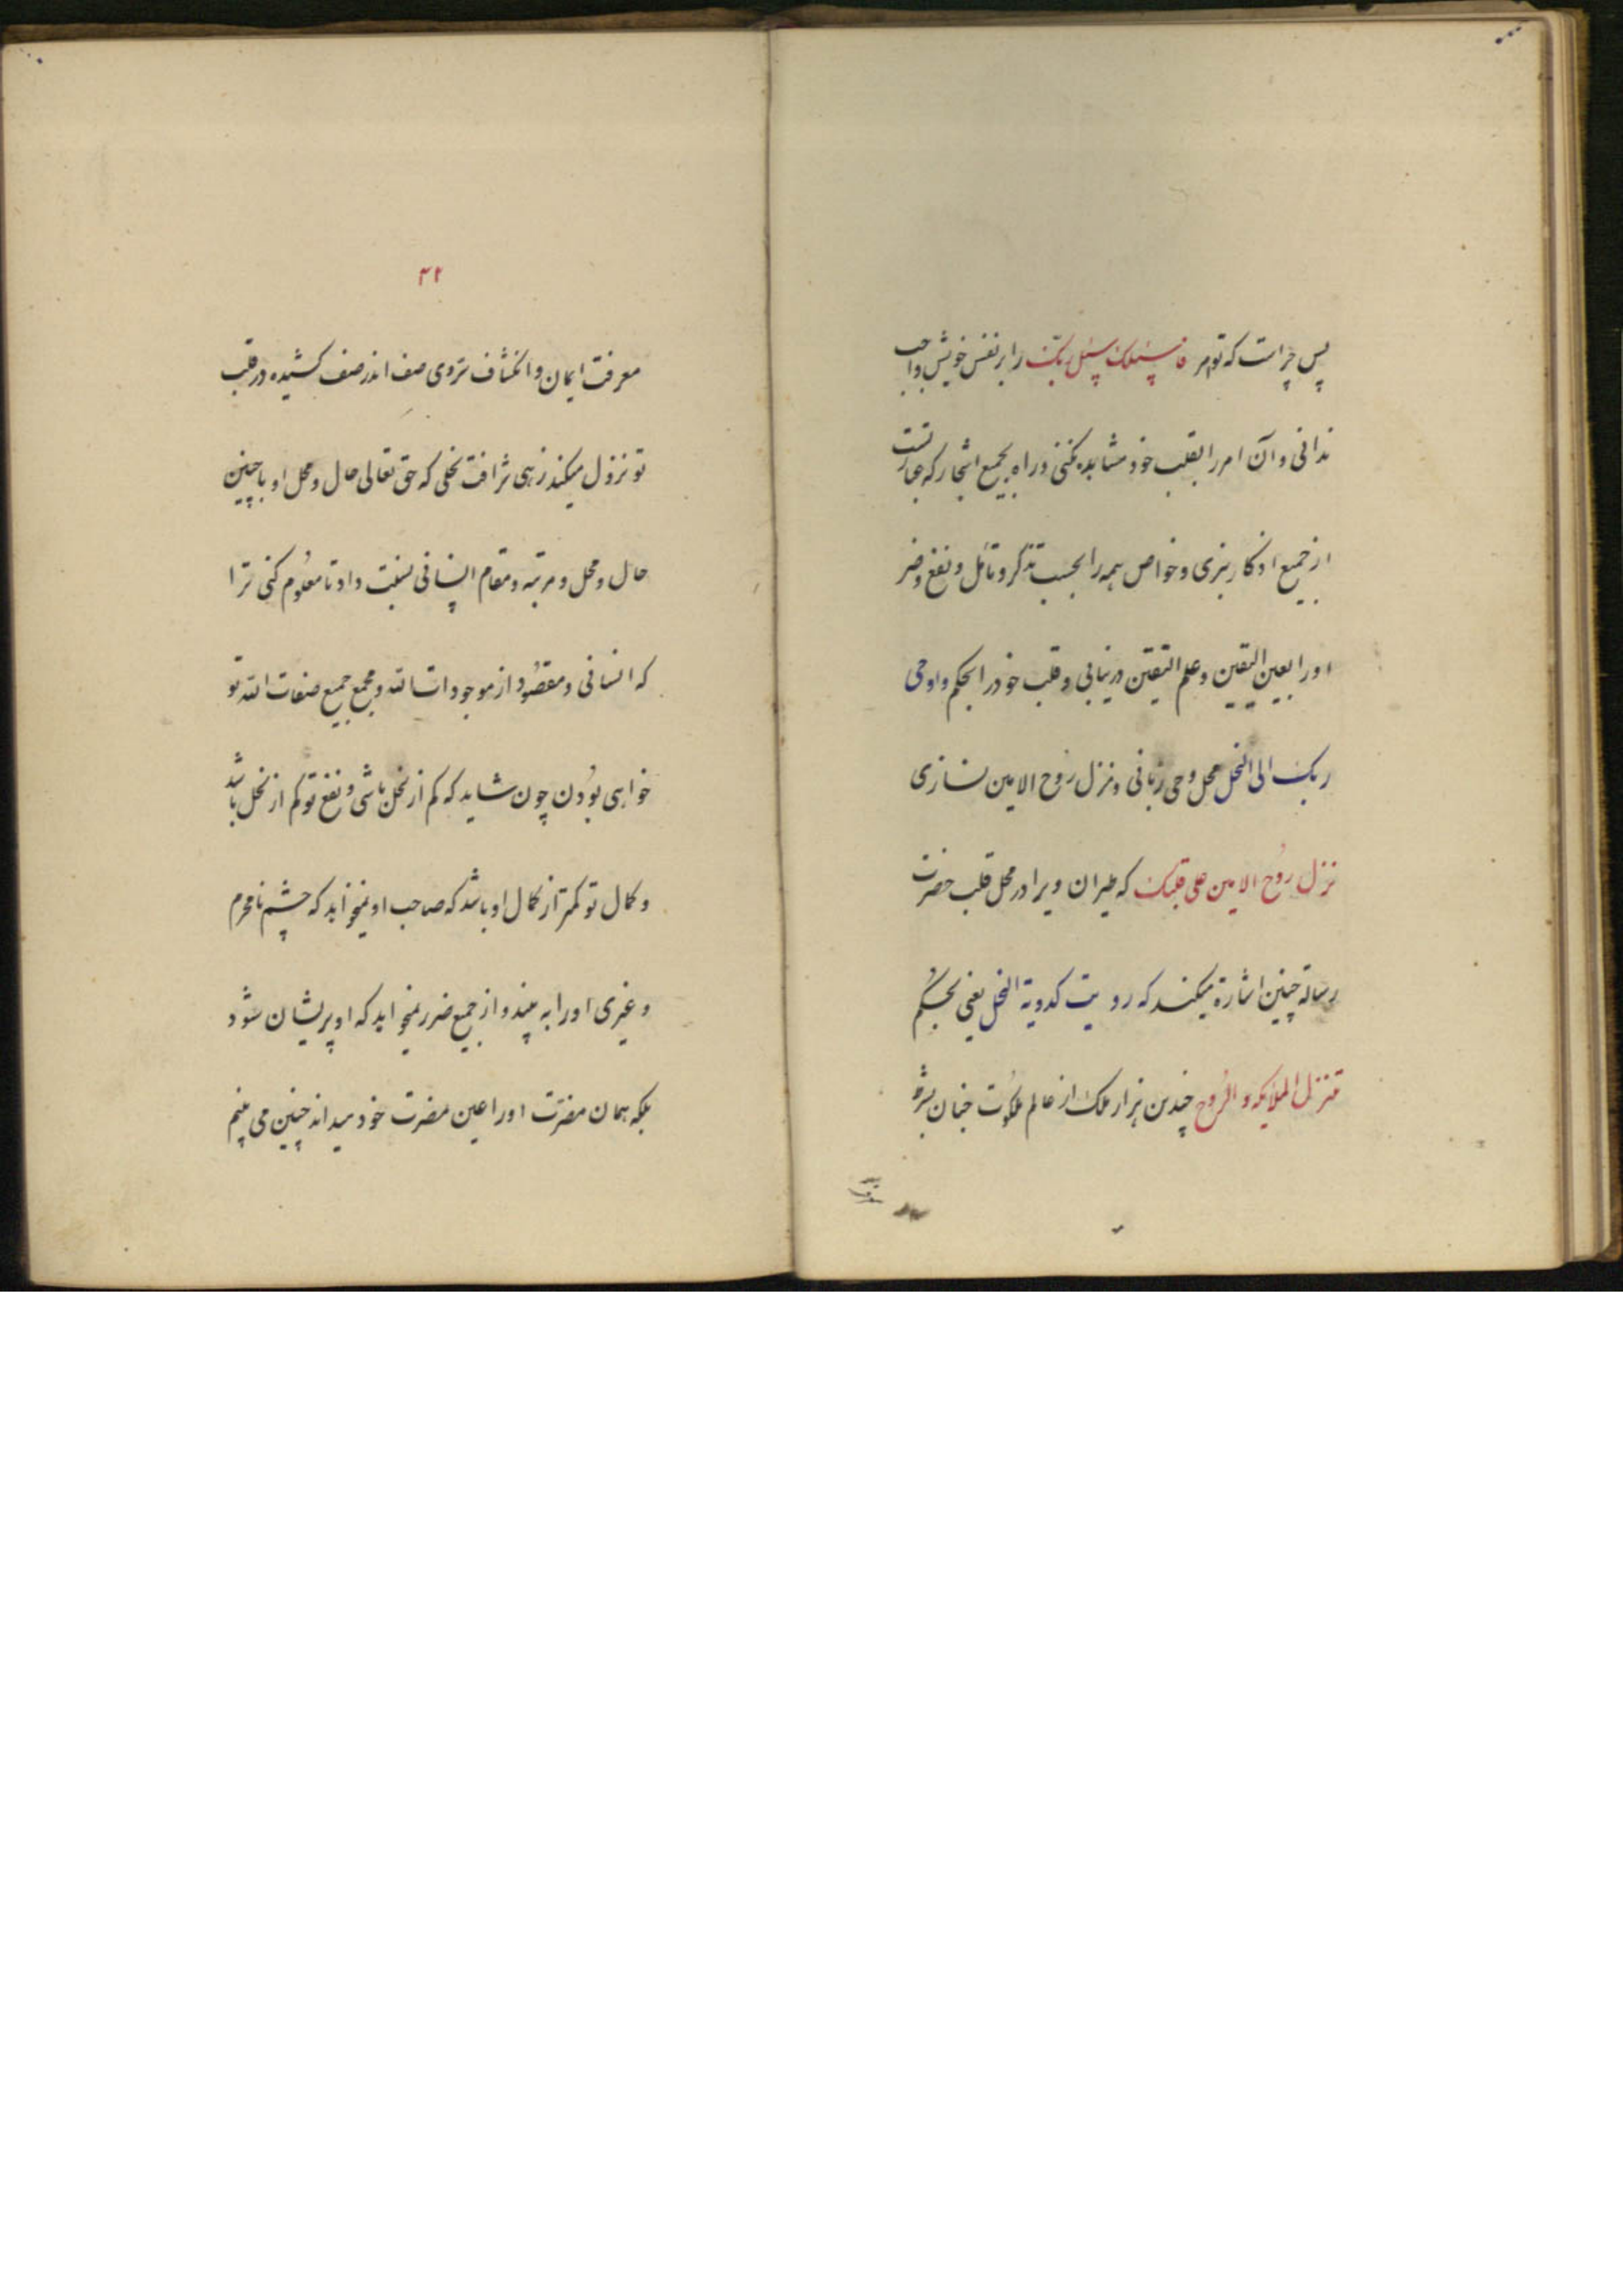 پس چراست که تو امر فاسلک سبل ربک را بر نفس خویش واجب
ندانی و آن امر را بقلب خود مشاهده نکنی و راه بجمیع اشجار که عبارتست
از جمیع اذکار نبری و خواص همه را بحسب تذکر و تأمل و نفع و ضر
او را بعین الیقین و علم الیقین درنیابی و قلب خود را بحکم و اوحی
ربک الی النحل محل وحی ربانی و منزل روح الامین نسازی
نزل روح الامین علی قلبک که طیران ویرا در محل قلب حضرت
رسالة چنین اشارة میکند که رویت کدویة النحل یعنی بحکم
تنزل الملائکه و الروح چندین هزار ملک از عالم ملکوت جنان بشر
۴۲
معرفت ایمان و انکشاف تروی صف اندر صف کشیده در قلب
تو نزول میکند زهی شرافت نحلی که حق تعالی حال و محل او با چنین
حال و محل و مرتبه و مقام انسانی نسبت داد تا معلوم کنی ترا
که انسانی و مقصود از موجودات الله و مجمع جمیع صفات الله تو
خواهی بودن چون شاید که کم از نحل باشی و نفع تو کم از نحل باشد
و کمال تو کمتر از کمال او باشد که صاحب او نمیخواهد که چشم نامحرم
و غیری او را به بیند و از جمیع ضرر نمیخواهد که او پریشان شود
بلکه همان مضرت او را عین مضرت خود میداند چنین می بینم